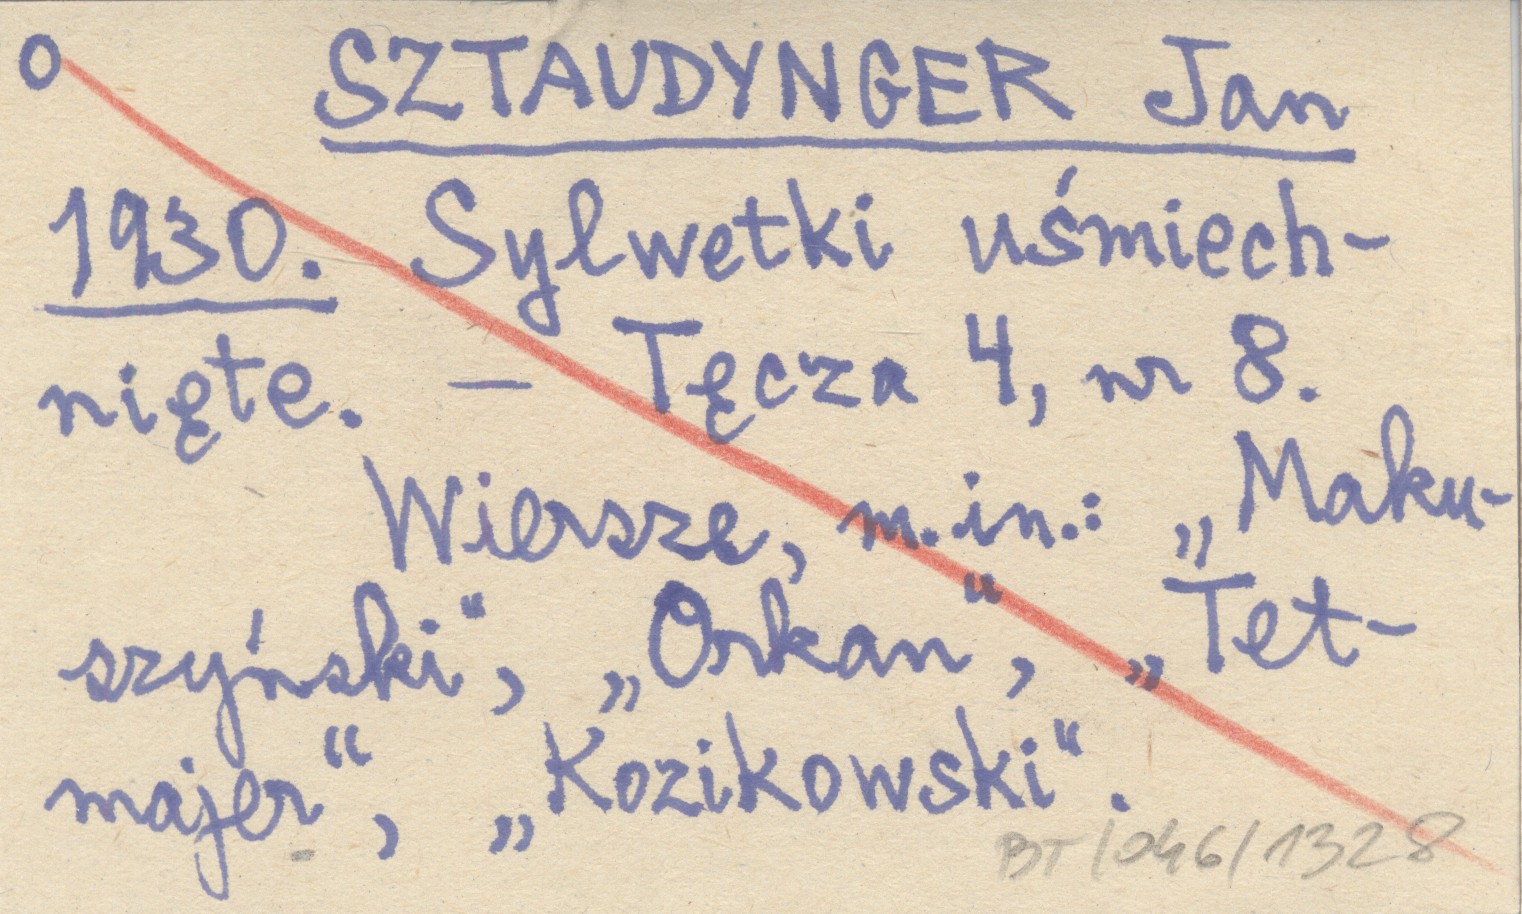 O SZTAUDYNGER Jan
1930. Sylwetki uśmiech-
nięte. — Tęcza 4, nr 8.
Wiersze, m.in.: „Maku-
szyński“, „Orkan“, „Tet-
majer“, „Kozikowski“.
BT/046/1328